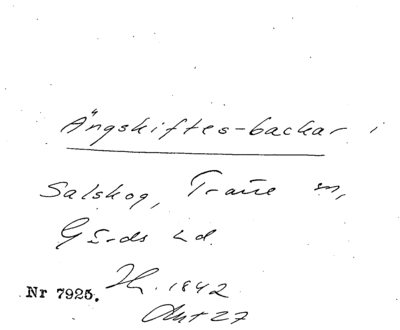 Ängskiftes-backar i
Salskog, Trane
Gärds hd.
Nr 7925. 1842
27